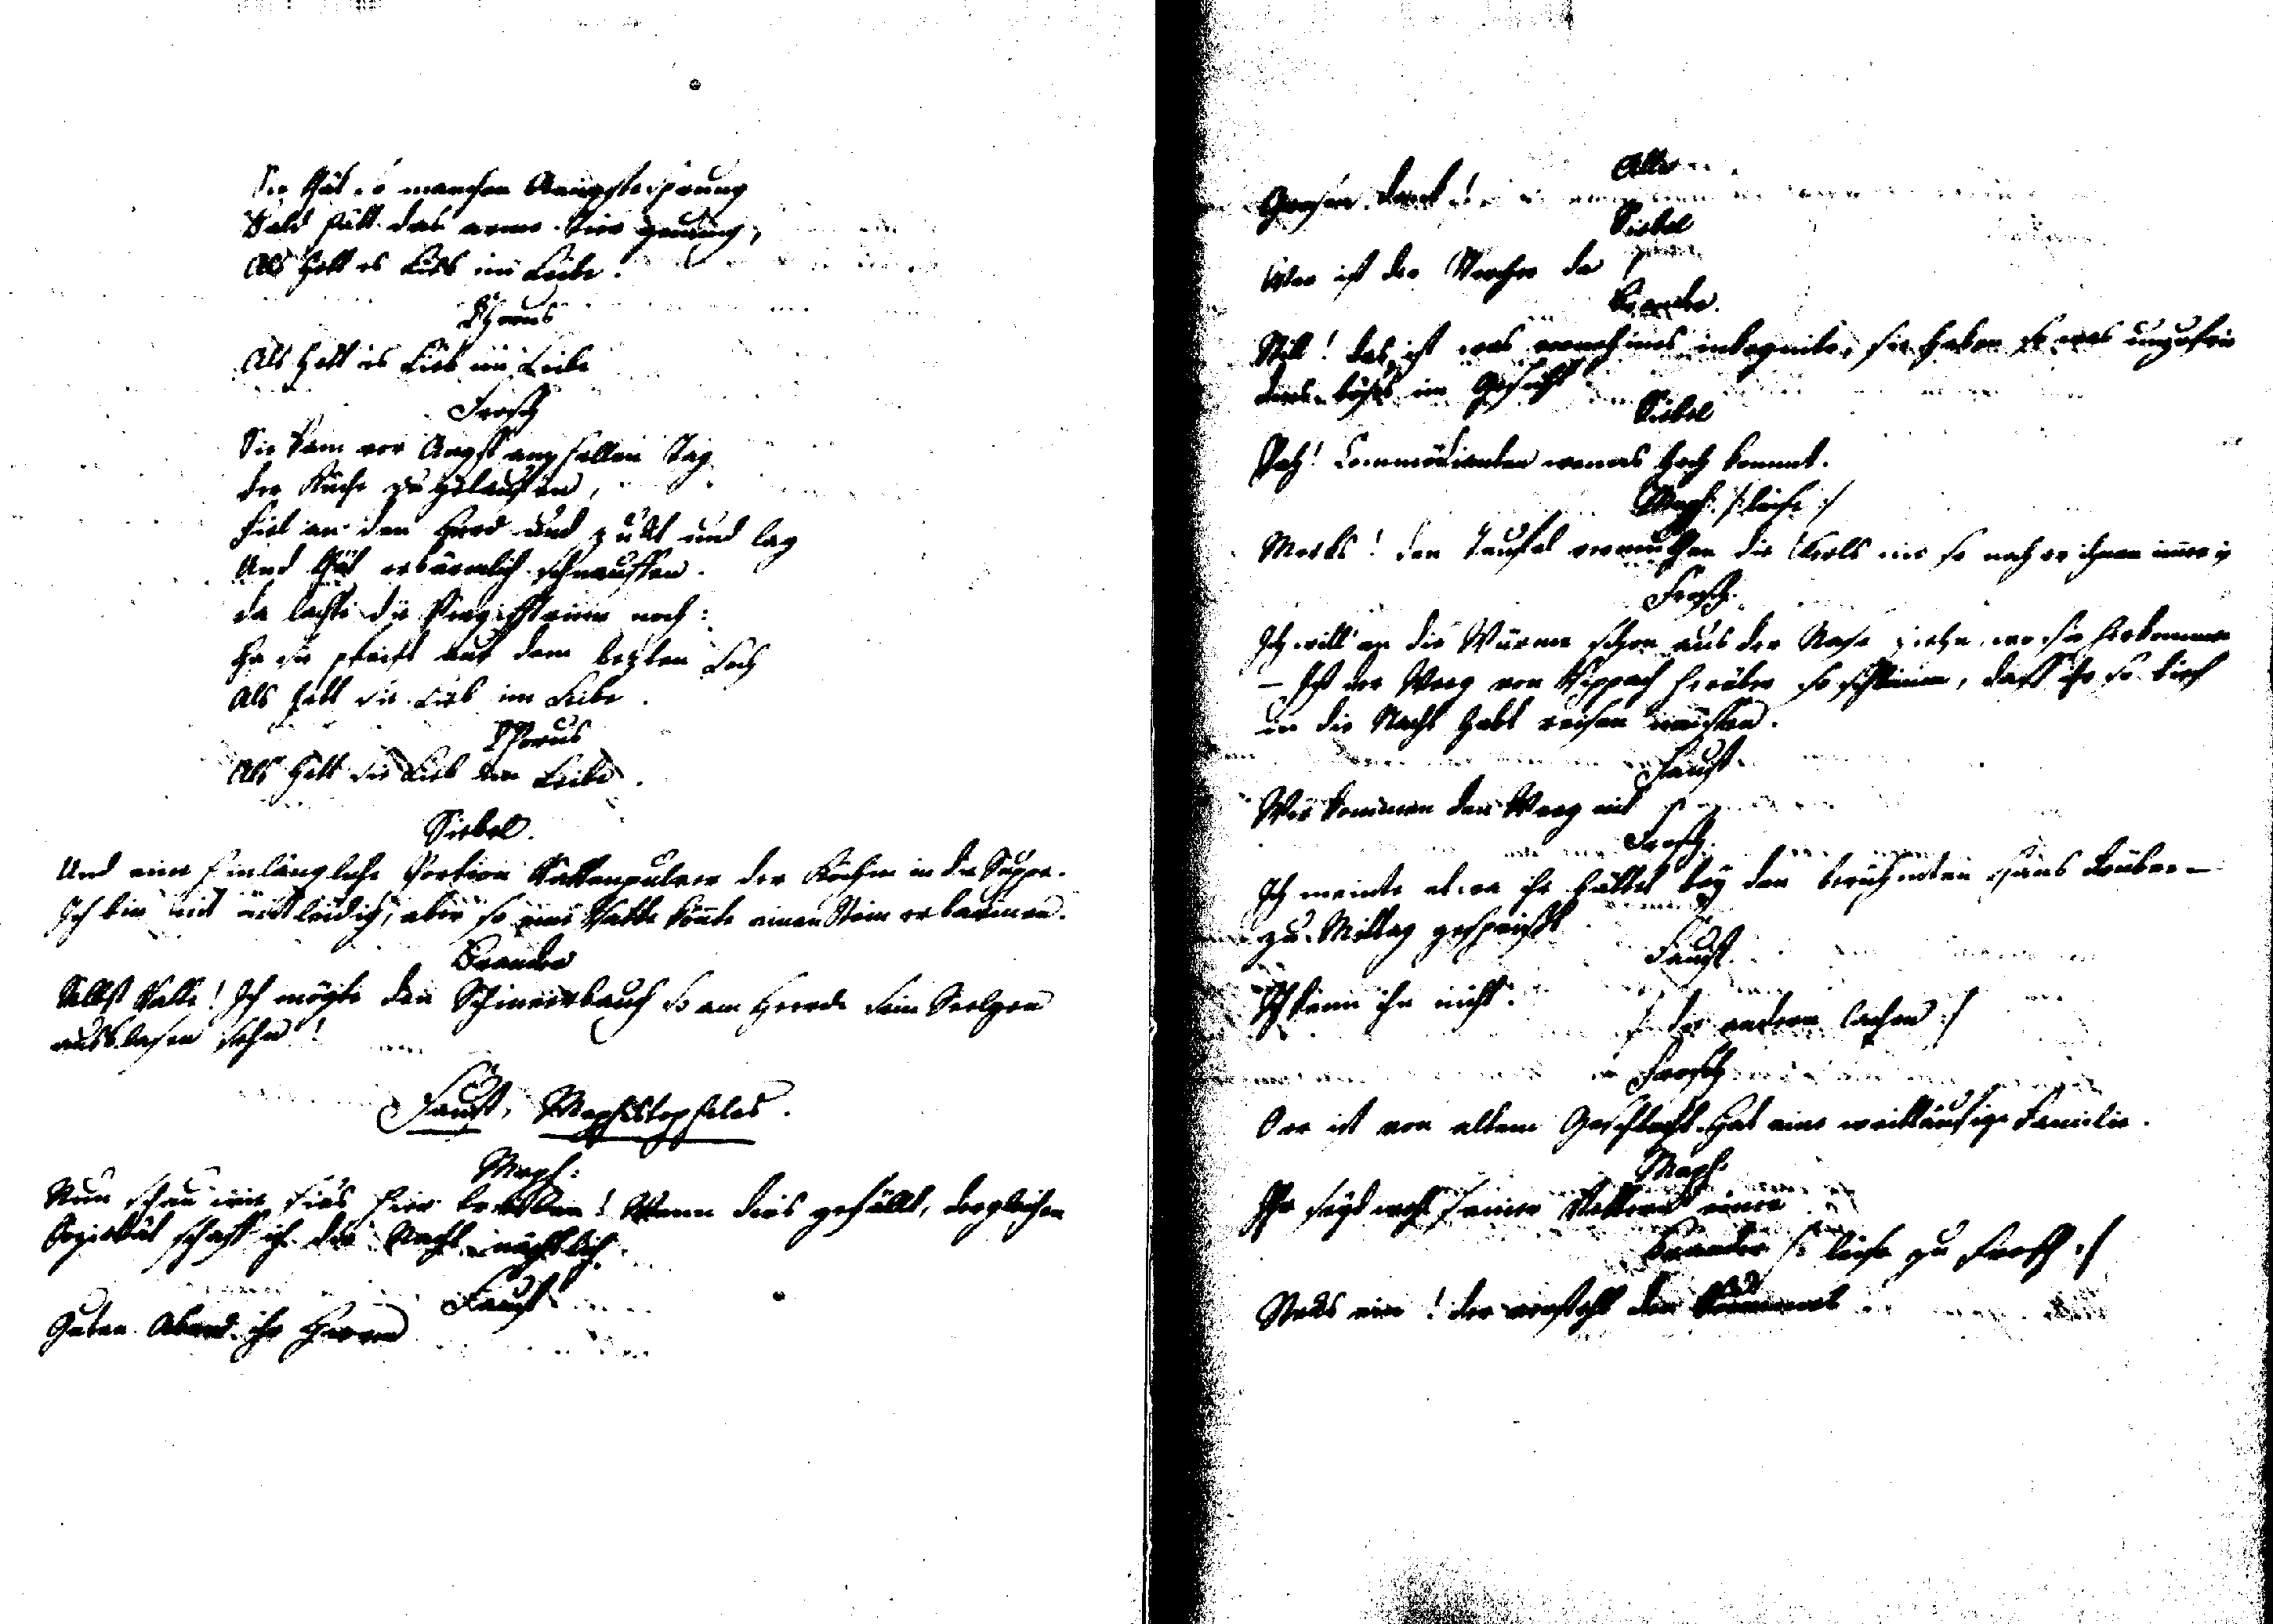 Sie thät so manchen Aengstesprung
Bald hätt das arme Tier genung,
Als hett es Lieb im Leibe.
Chorus
Als hett es Lieb im Leibe
Frosch
Sie kam vor Angst am hellen Tag
der Küche zu gelauffen,
fiel an den Heerd und zuckt und lag
Und thät erbärmlich schnauffen.
da lachte die Vergiftrinn noch:
Ha sie pfeift auf dem lezten Loch
Als hett sie Lieb im Leibe.
Chorus
Als hett sie Lieb im Leibe.
Siebel.
Und eine hinlängliche Portion Rattenpulver der Köchin in die Suppe.
Ich bin nit mitleidig, aber so eine Ratte könnte einen Stein erbarmen.
Brander
Selbst Ratte! Ich mögte den Schmeerbauch so am Heerde sein Seelgen
ausblasen sehn!
Faust, Mephistopheles.
Meph:
Nun schau wie sies hier treiben! Wenn dirs gefällt, dergleichen
Sozietät schaff ich dir Nacht nächtlich.
Faust
Guten Abend ihr Herren
Alle
Grosen danck!
Siebel
Wer ist der Storcher da
Brander.
Still! das ist was vornehmes inkognito, sie haben so was unzufrie
dnes böses im Gesicht
Siebel
Pah! Commödianten wenns hoch kommt.
Meph. /: leise :/
Mercks! den Teufel vermuthen die Kerls nie so nah er ihnen immer is
Frosch.
Ich will en die Würme schon aus der Nase ziehn wo sie herkommen
– Ist der Weeg von Rippach herüber so schlimm, dass ihr so tief
in die Nacht habt reisen müssen.
Faust.
Wir kommen den Weeg nit
Frosch.
Ich meinte etwa ihr hättet bey den berühmten Hans drüben –
zu Mittag gespeisst
Faust.
Ich kenn ihn nicht.
/: die andern lachen :/
Frosch
O er ist von altem Geschlecht. Hat eine weitläufige Familie.
Meph.
Ihr seyd wohl seiner Vettern einer
Brander /: leise zu Frosch :/
Stecks ein! der versteht den Rummel